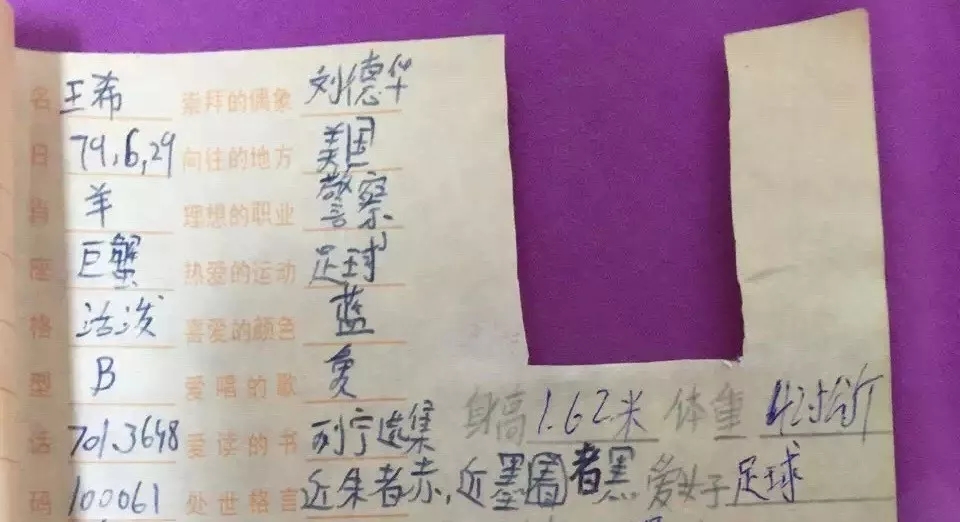 名 王希 崇拜的偶象 刘德华
日 79.6.29 向往的地方 美国
肖 羊 理想的职业 警察
座 巨蟹 热爱的运动 足球
格 活泼 喜爱的颜色 蓝
型 B 爱唱的歌
话 701.3648 爱读的书 列宁选集 身高 1.62米 体重 42公斤
码 100061 处世格言 近朱者赤,近墨者黑 爱好 足球